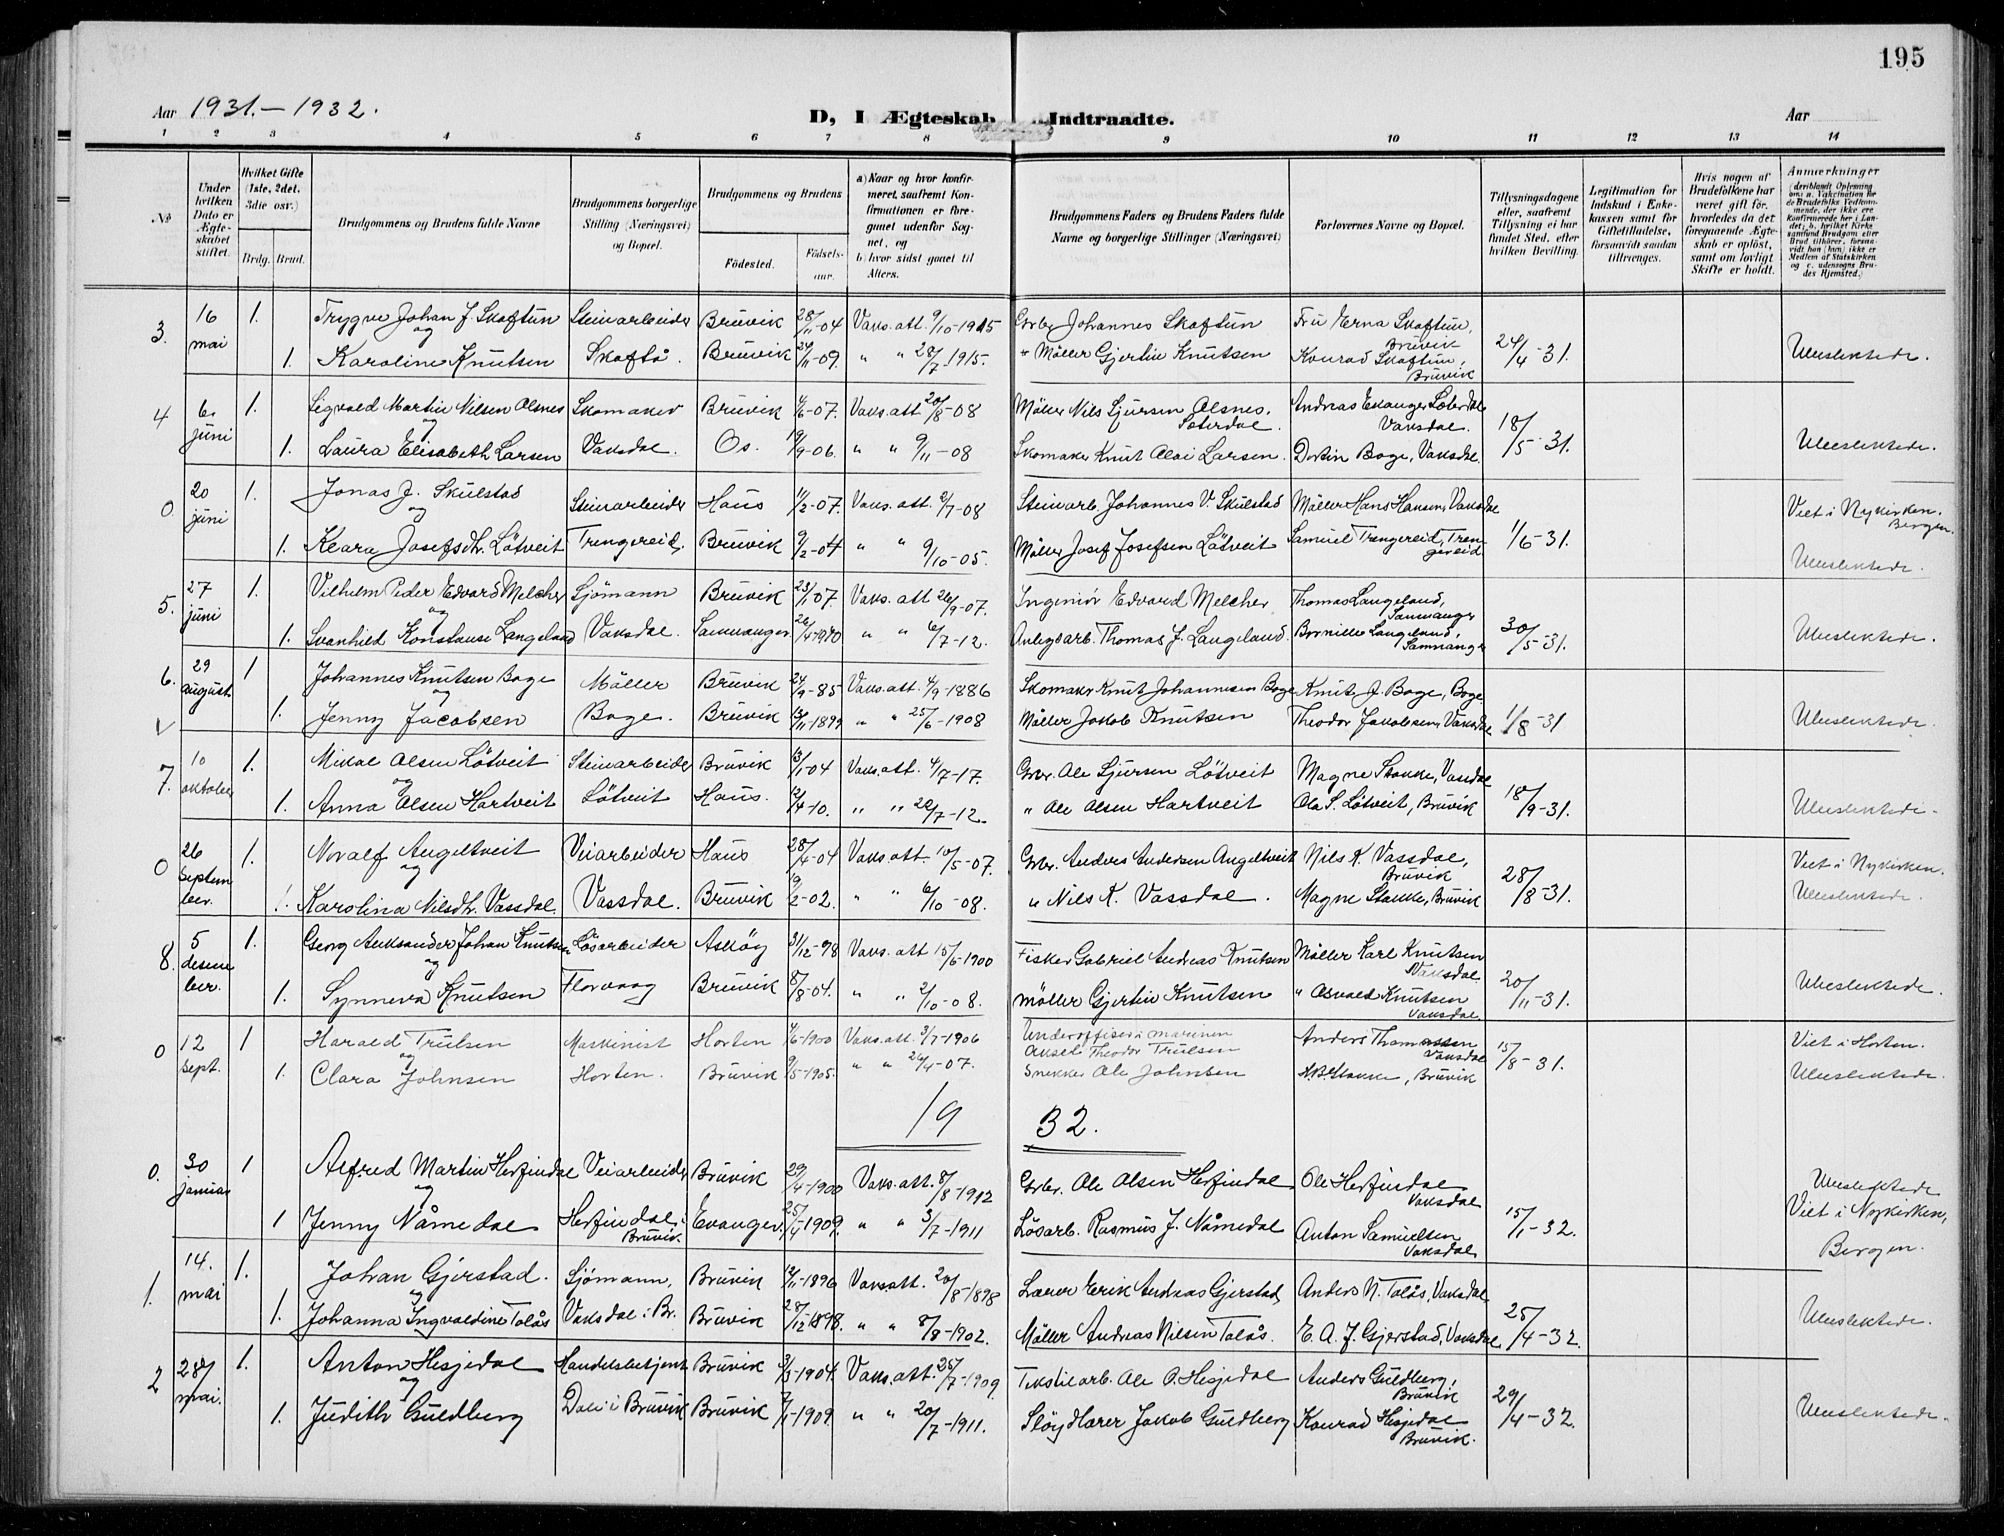 195
Aar 1931.-1932.
D, I Ægteskab Indtraadte.
Aar
1 2 3 4 5 6 7 8 9 10 11 12 13 14
No
Under hvilken Dato er Ægteskabet stiftet.
Hvilket Gifte (1ste, 2det, 3die osv.)
Brdg. Brud.
Brudgommens og Brudens fulde Navne
Brudgommens borgerlige Stilling (Næringsvei) og Bopæl.
Brudgommens og Brudens
Fødested.
Fødselsaar.
a) Naar og hvor konfirmeret, saafremt Konfirmationen er foregaaet udenfor Sognet, og
b) hvor sidst gaaet til Alters.
Brudgommens Faders og Brudens Faders fulde Navne og borgerlige Stillinger (Næringsvei)
Forlovernes Navne og Bopæl.
Tillysningsdagene eller, saafremt Tillysning ei har fundet Sted, efter hvilken Bevilling.
Legitimation for Indskud i Enkekassen samt for Giftetilladelse, forsaavidt saadan tiltrænges.
Hvis nogen af Brudefolkene har været gift før, hvorledes da det foregaaende Ægteskab er opløst, samt om lovligt Skifte er holdt.
Anmærkninger (deriblandt Oplysning om: a. Vakcination for de Brudefolks Vedkommende, der ikke ere konfirmerede her i Landet; b. hvilket Kirkesamfund Brudgom eller Brud tilhører, forsaavidt han (hun) ikke er Medlem af Statskirken og c. udensogns Brudes Hjemsted.)
3. 16 mai 1. Trygve Johan J. Skaftun Steinarbeider Bruvik 28/11-04 Vaks. att. 9/10-1915 Grbr Johannes Skaftun Fru Erna Skaftun, Bruvik 24/4-31. Ubeslektede.
og
1. Karoline Knutsen Skaftå. Bruvik 24/11-09. " " 28/7-1915. " Möller Gjertin Knutsen Konrad Skaftun, Bruvik
4 6. juni 1. Sigvald Martin Nilsen Olsnes Skomaker Bruvik 4/6-07. Vaks. att 20/8-08 Möller Nils Sjursen Olsnes, Sæterdal. Andreas Evanger Sæterdal Vaksdal. 18/5-31. Ubeslektede.
og
1. Laura Elisabeth Larsen Vaksdal. Os. 19/9-06. " " 9/11-08 Skomaker Knut Olai Larsen. Dortin Boge, Vaksdal.
0 20 juni 1. Jonas J. Skulstad Steinarbeider Haus 11/2-07. Vaks. att. 2/7-08 Steinarb. Johannes V. Skulstad Möller Hans Hansen, Vaksdal 1/6-31. Viet i Nykirken. Bergen.
og
1. Klara Josefsdtr. Lötveit Trengereid. Bruvik 9/2-04 " " 9/10-05. Möller Josef Josefsen Lötveit Samuel Trengereid, Trengereid Ubeslektede.
5. 27 juni 1. Vilhelm Peder Edvard Melcher Sjömann Bruvik 23/1 07. Vaks. att 26/9-07. Ingeniör Edvard Melcher Thomas Langeland, Samnanger 30/5-31. Ubeslektede.
og
1. Svanhild Konstanse Langeland Vaksdal. Samnanger 26/4-1910 " " 6/7-12. Anlegsarb. Thomas J. Langeland. Langeland, Samnanger
6. 29 august 1 Johannes Knutsen Boge Möller Bruvik 24/9-85 Vaks. att. 4/9-1886 Skomaker Knut Johannesen Boge Knut J. Boge, Boge 1/8-31 Ubeslektede.
og
V 1. Jenny Jacobsen Boge. Bruvik 13/11-1899 " " 25/6-1908 Möller Jakob Knutsen Theodor Jakobsen, Vaksdal
7. 10 oktober 1. Mikal Olsen Lötveit Steinarbeider Bruvik 13/1-04 Vaks. att. 4/7-17. Grbr. Ole Sjursen Lötveit Magne Stakke, Vaksdal 18/9-31. Ubeslektede.
og
1. Anna Olsen Hartveit Lötveit Haus. 12/4-10. " " 22/7-12. " Ole Olsen Hartveit Ola S. Lötveit, Bruvik
0 26 September. 1. Noralf Angeltveit Veiarbeider Haus 28/4-04 Vaks. att. 10/5-07. Grbr. Anders Andersen Angeltveit Nils K. Vassdal, Bruvik 28/8-31. Viet i Nykirken.
og
1. Karolina Nilsdtr. Vassdal. Vassdal. Bruvik 19/2-02. " " 6/10-08. " Nils K. Vassdal. Magne Stakke, Bruvik Ubeslektede.
8. 5 desember. 1. Georg Aleksander Johan Knutsen Lösarbeider Asköy 31/12-98 Vaks. att 15/6-1900 Fisker Gabriel Andreas Knutsen Möller Karl Knutsen Vaksdal 20/11-31. Ubeslektede.
og
1. Synneva Knutsen Florvaag Bruvik 8/8-04. " " 2/10-08. Möller Gjertin Knutsen " Osvald Knutsen Vaksdal.
0 12 Sept. 1 Harald Trulsen Maskinist Horten 4/6-1900 Vaks. att. 3/7-1906 Underoffiser i marinen Aksel Theodor Trulsen Anders Thomassen Vaksdal 15/8-31. Viet i Horten.
og
1. Clara Johnsen Horten. Bruvik 9/5-1905. " " 26/4-07. Snekker Ole Johnsen H.B. Stakke, Bruvik Ubeslektede.
19 32.
0. 30 januar 1 Alfred Martin Herfindal Veiarbeider Bruvik 29/4-1900 Vaks. att. 8/8-1912 Grbr. Ole Olsen Herfindal Ole Herfindal Vaksdal 15/1-32. Ubeslektede
og
1 Jenny Nåmedal Herfindal i Bruvik. Evanger. 25/4-1909. " " 3/7-1911 Lösarb. Rasmus J. Nåmedal Anton Samuelsen Vaksdal Viet i Nykirken, Bergen.
1. 14. mai 1. Johan Gjerstad. Sjömann, Bruvik 12/11-1896 Vaks att. 20/8-1898 Lærer Erik Andreas Gjerstad Anders N. Tolås, Vaksdal 25/4-32. Ubeslektede.
og
1. Johanna Ingvaldine Tolås Vaksdal i Br. Bruvik 28/12-1898. " " 8/8-1902. Möller Andreas Nilsen Tolås. E. A. J. Gjerstad, Vaksdal
2 28/ mai. 1. Anton Hesjedal Handelsbetjent Bruvik 3/3-1904. Vaks. att. 25/7-1909. Tekstilarb. Ole O. Hesjedal Anders Guldberg, Bruvik 29/4-32. Ubeslektede.
og
1. Judith Guldberg Dale i Bruvik Bruvik 7/1-1909. " " 20/7-1911. Slöydlærer Jakob Guldberg Konrad Hesjedal Bruvik.